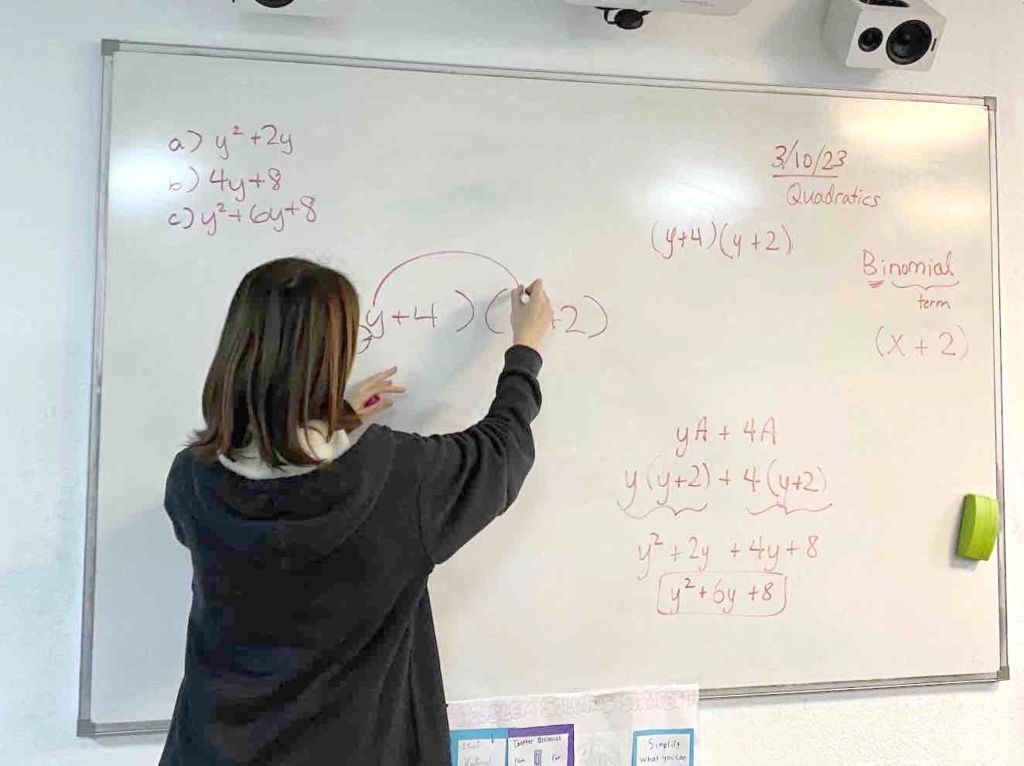 a) y² + 2y
b) 4y + 8
c) y² + 6y + 8
y + 4 ) ( + 2 )
3/10/23
Quadratics
(y+4)(y+2)
Binomial
term
(x + 2)
yA + 4A
y(y+2) + 4(y+2)
y² + 2y + 4y + 8
y² + 6y + 8
Simplify
what you can